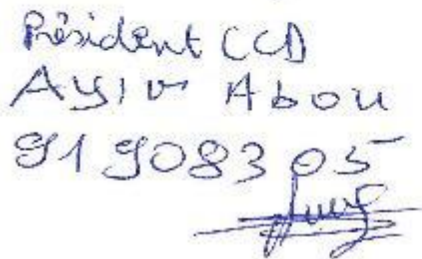 Président CCD
Ayiv Abou
91908305